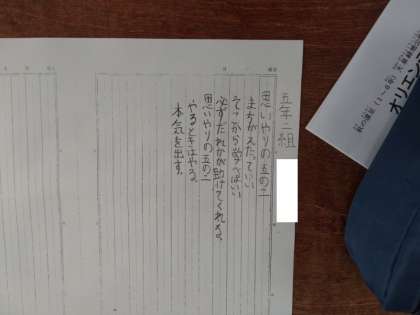 五年二組
思いやりの五の二
まちがえたっていい
そこから学べばいい
必ずだれかが助けてくれる。
思いやりの五の二
やるときはやる。
本気を出す。
オリエン